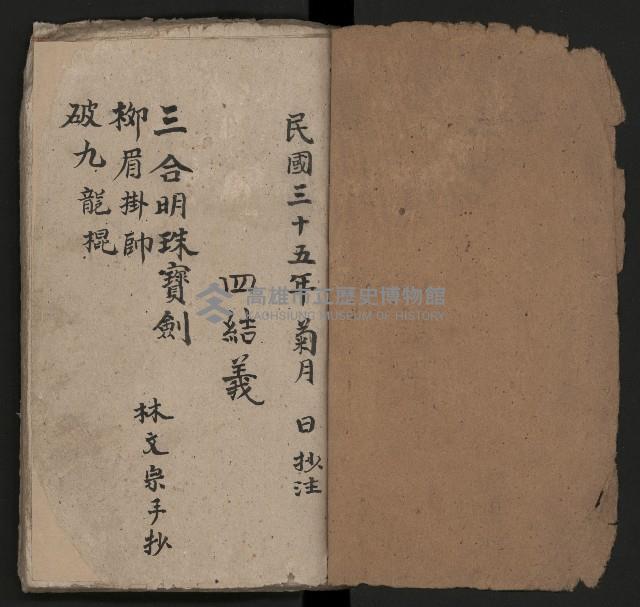 民國三十五年 菊月 日抄注
四結義
三合明珠寶劍
柳眉掛帥
破九龍棍
林文宗手抄
高雄市立歷史博物館
KAOHSIUNG MUSEUM OF HISTORY